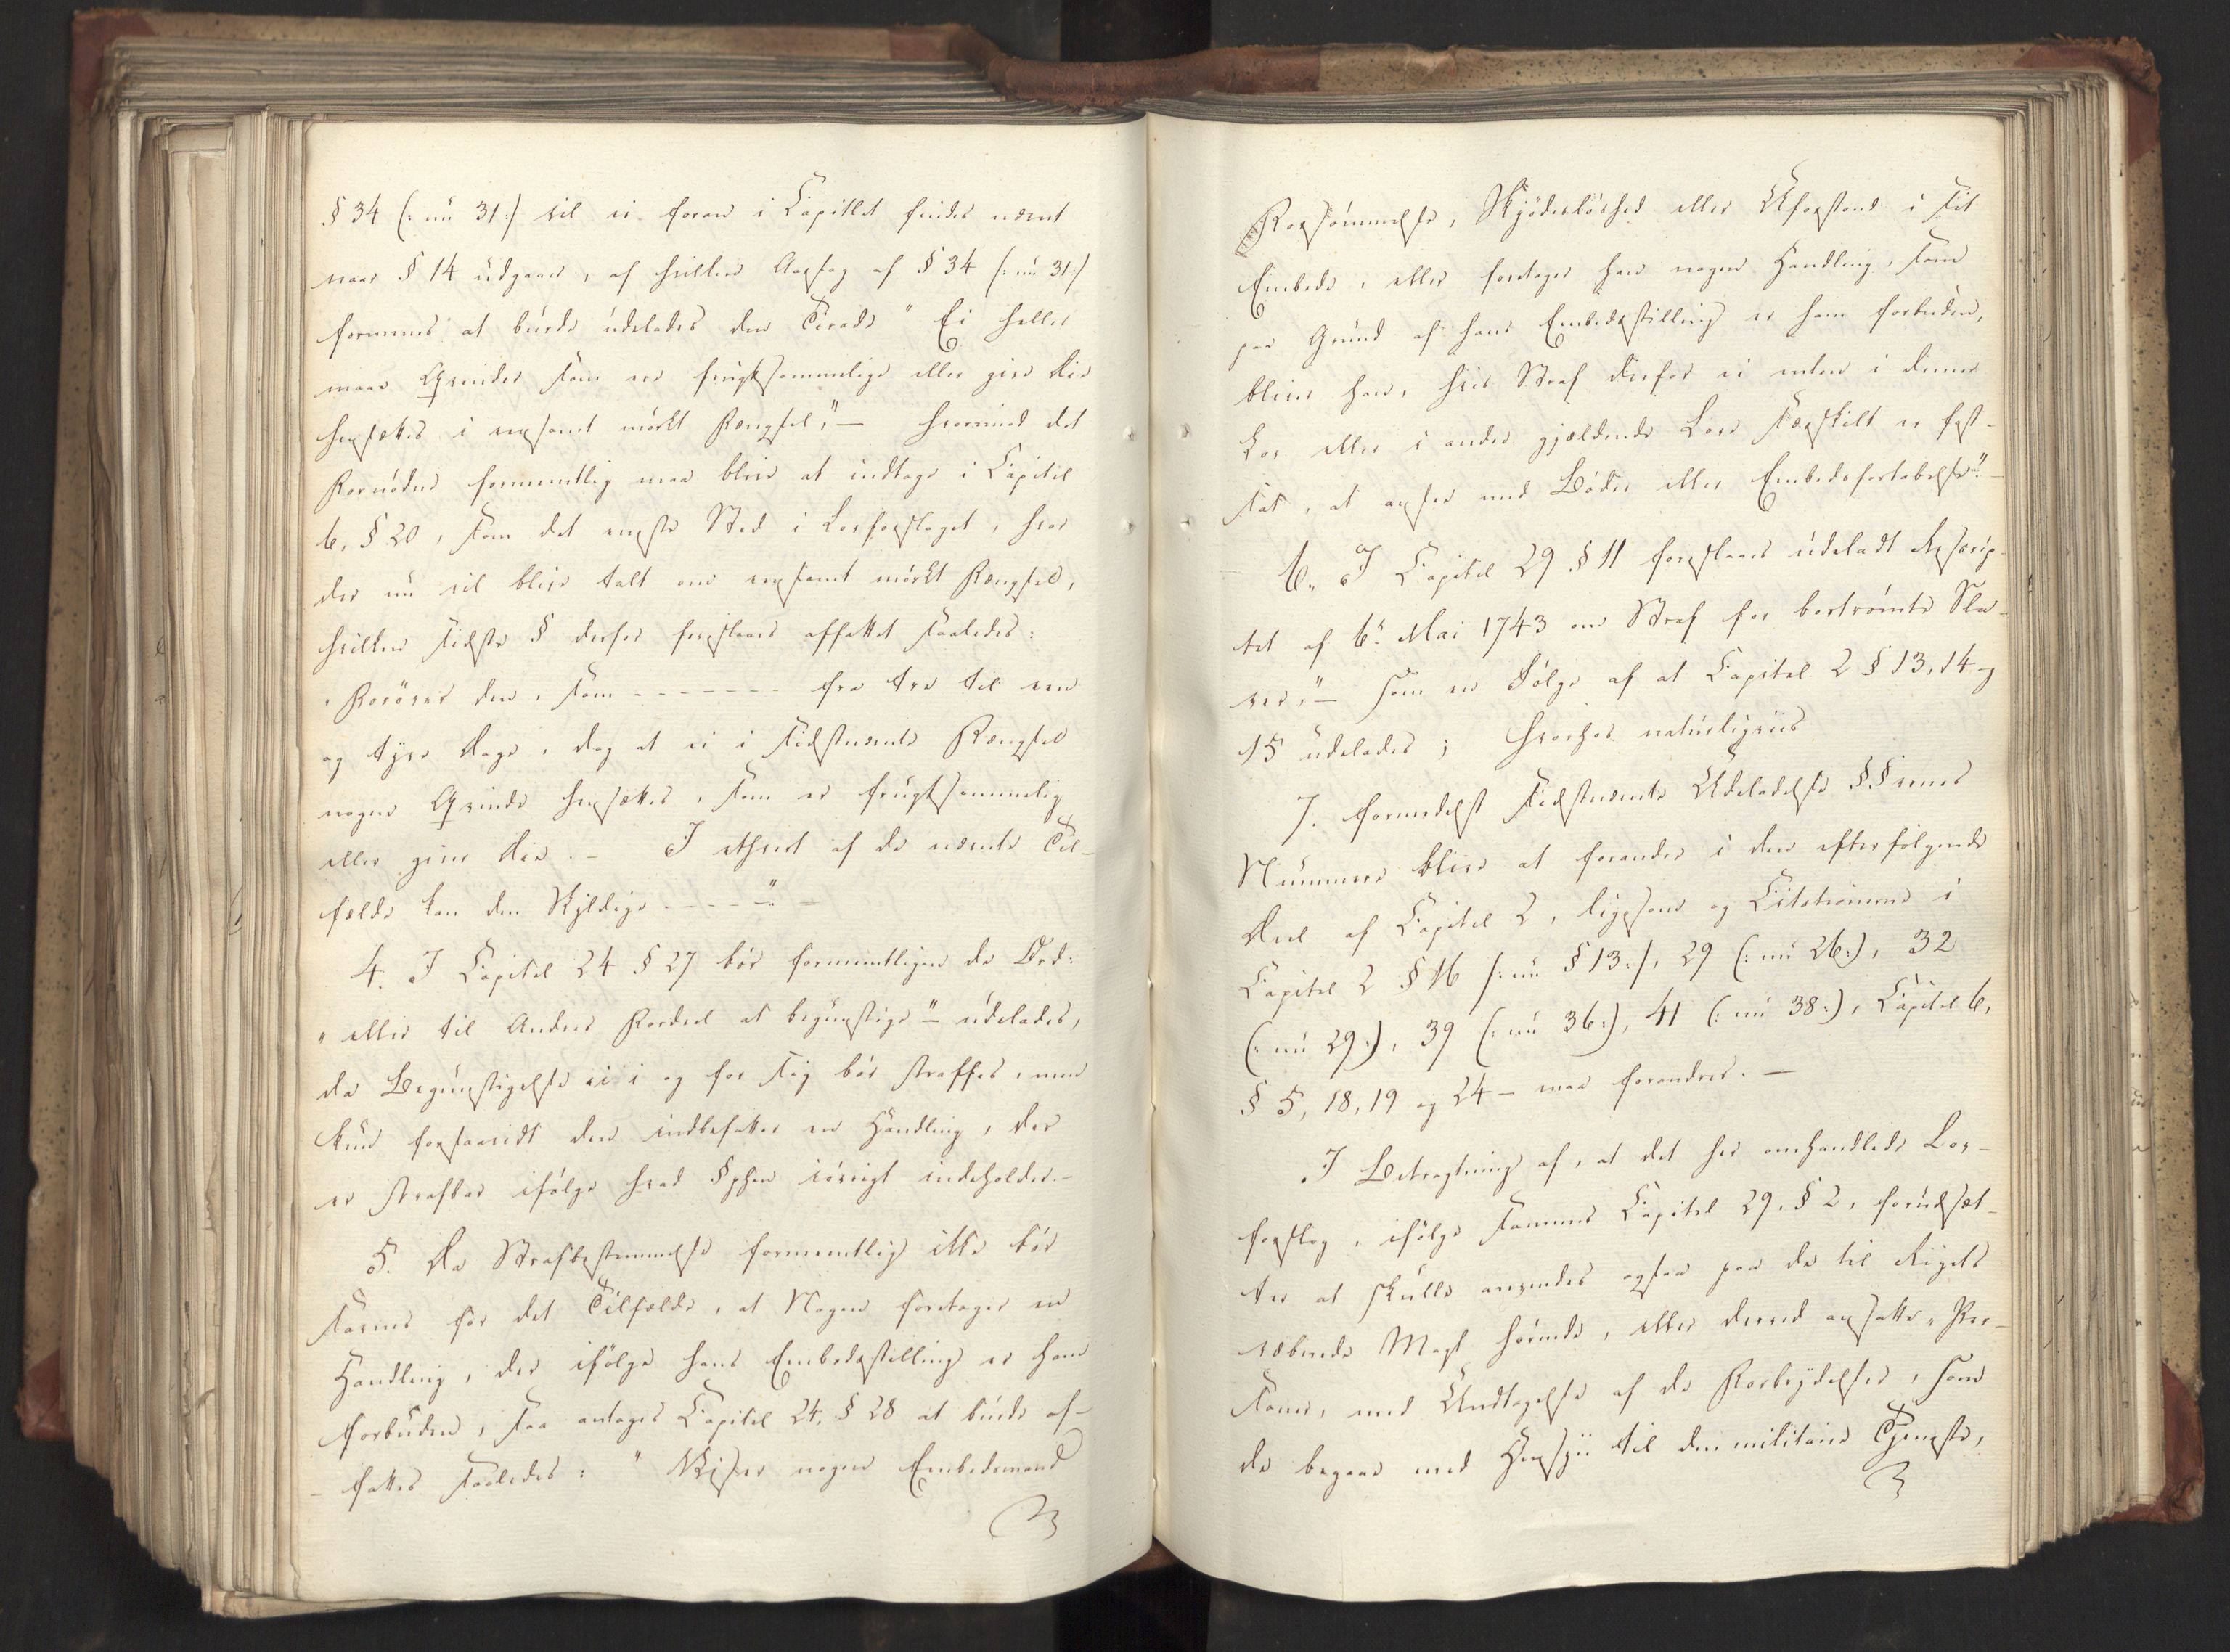 § 34 (: nu 31:) vil ei foran i Capitlet findes nævnt
naar § 14 udgaaer, af hvilken Aarsag af § 34 (: nu 31:)
formenes at burde udelades den Tirade "Ei heller
maae Qvinder som ere frugtsommelige eller give Die
hensættes i eensomt mørkt Fængsel," — hvorimod det
Fornødne formeentlig maa blive at indtage i Capitel
6, § 20, som det eneste Sted i Lovforslaget, hvor
der nu vil blive talt om eensomt mørkt Fængsel,
hvilken sidste § derfor foreslaaes affattet saaledes:
"Forøver den, som - - - - - - - fra tre til een
og tyve Dage, dog at ei i sidstnævnte Fængsel
nogen Qvinde hensættes, som er frugtsommelig
eller giver Die. — I ethvert af de nævnte Til-
fælde kan den Skyldige - - - - -" —
4. I Capitel 24 § 27 bør formeentligen de Ord:
"eller til Andres Fordeel at begunstige" — udelades,
da Begunstigelse ei i og for sig bør straffes, men
kun forsaavidt den indbefatter en Handling, der
er strafbar ifølge hvad §phen iøvrigt indeholder. —
5. Da Strafbestemmelse formeentlig ikke bør
savnes for det Tilfælde, at Nogen foretager en
Handling, der ifølge hans Embedsstilling er ham
forbuden, saa antages Capitel 24, § 28 at burde af-
- fattes saaledes: "Viser nogen Embedsmand
Forsømmelse, Skjødesløshed eller Uforstand i sit
Embede, eller foretager han nogen Handling, som
paa Grund af hans Embedsstilling er ham forbuden,
bliver han, hvis Straf derfor ei enten i denne
Lov eller i andre gjældende Love særskilt er fast-
sat, at ansee med Bøder eller Embedsfortabelse". —
6. I Capitel 29 § 11 foreslaaes udeladt "Rescrip-
tet af 6te Mai 1743 om Straf for bortrømte Sla-
ver," — som en Følge af at Capitel 2 § 13, 14 og
15 udelades; hvorhos naturligviis
7. formedelst sidstnævnte Udeladelse §§vernes
Nummere blive at forandre i den efterfølgende
Deel af Capitel 2, ligesom og Citationerne i
Capitel 2 § 16 (: nu § 13:), 29 (: nu 26:), 32
(: nu 29:), 39 (: nu 36:), 41 (: nu 38:), Capitel 6,
§ 5, 18, 19 og 24 — maa forandres. —
I Betragtning af, at det her omhandlede Lov-
forslag, ifølge sammes Capitel 29, § 2, forudsæt-
ter at skulle anvendes ogsaa paa de til Rigets
væbnede Magt hørende, eller derved ansatte, Per-
soner, med Undtagelse af de Forbrydelser, som
de begaae med Hensyn til den militaire Tjeneste,